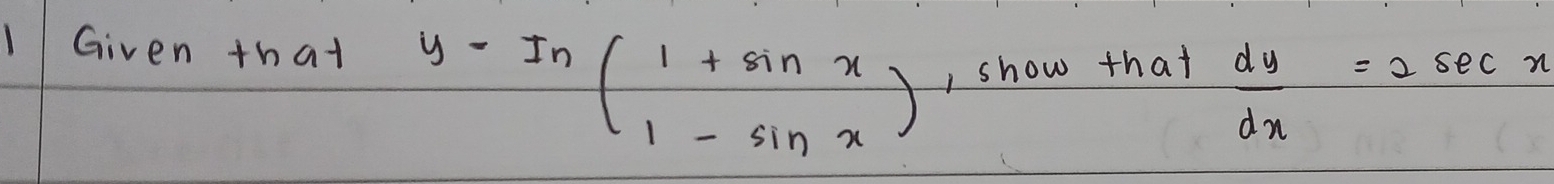 1 Given that y - In ( 1 + sin x / 1 - sin x ) , show that dy/dx = 2 sec x